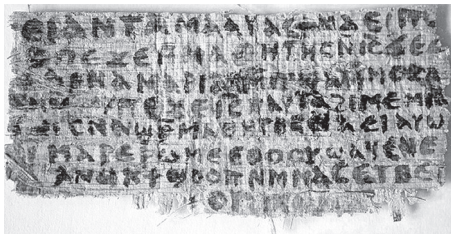 ⲉⲓ ⲁⲛ ⲧⲁⲙⲁⲁⲩ ⲁⲥϯ ⲛⲁⲉⲓ ⲡⲱ
ⲡⲉϫⲉ ⲙⲙⲁⲑⲏⲧⲏⲥ ⲛⲓⲥ ϫⲉ ⲥ
ⲁⲣⲛⲁ ⲙⲁⲣⲓⲁⲙ ⲙⲡϣⲁ ⲙⲙⲟⲥ ⲁ
ⲡⲉϫⲉ ⲓⲥ ⲛⲁⲩ ⲧⲁϩⲓⲙⲉ ⲙⲛ
ⲥⲛⲁϣⲣⲙⲁⲑⲏⲧⲏⲥ ⲛⲁⲉⲓ ⲁⲩⲱ
ⲙⲁⲣⲉⲣⲱⲙⲉ ⲉⲑⲟⲟⲩ ϣⲁϥⲉⲛⲉ
ⲁⲛⲟⲕ ϯϣⲟⲟⲡ ⲛⲙⲙⲁⲥ ⲉⲧⲃⲉ ⲡ